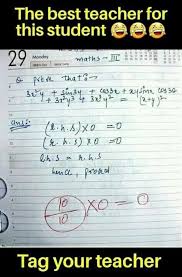 The best teacher for
this student 😂😂😂
29 Monday
maths - III
Q Prove that:-
3x²y + sin3y + cos3x + xy sinx cos3y
+ 3x²y³ + 3x²y² = (x+y)²
Ans:
(l.h.s) x 0 = 0
(r.h.s) x 0 = 0
l.h.s = r.h.s
hence, proved
10/10 x 0 = 0
Tag your teacher